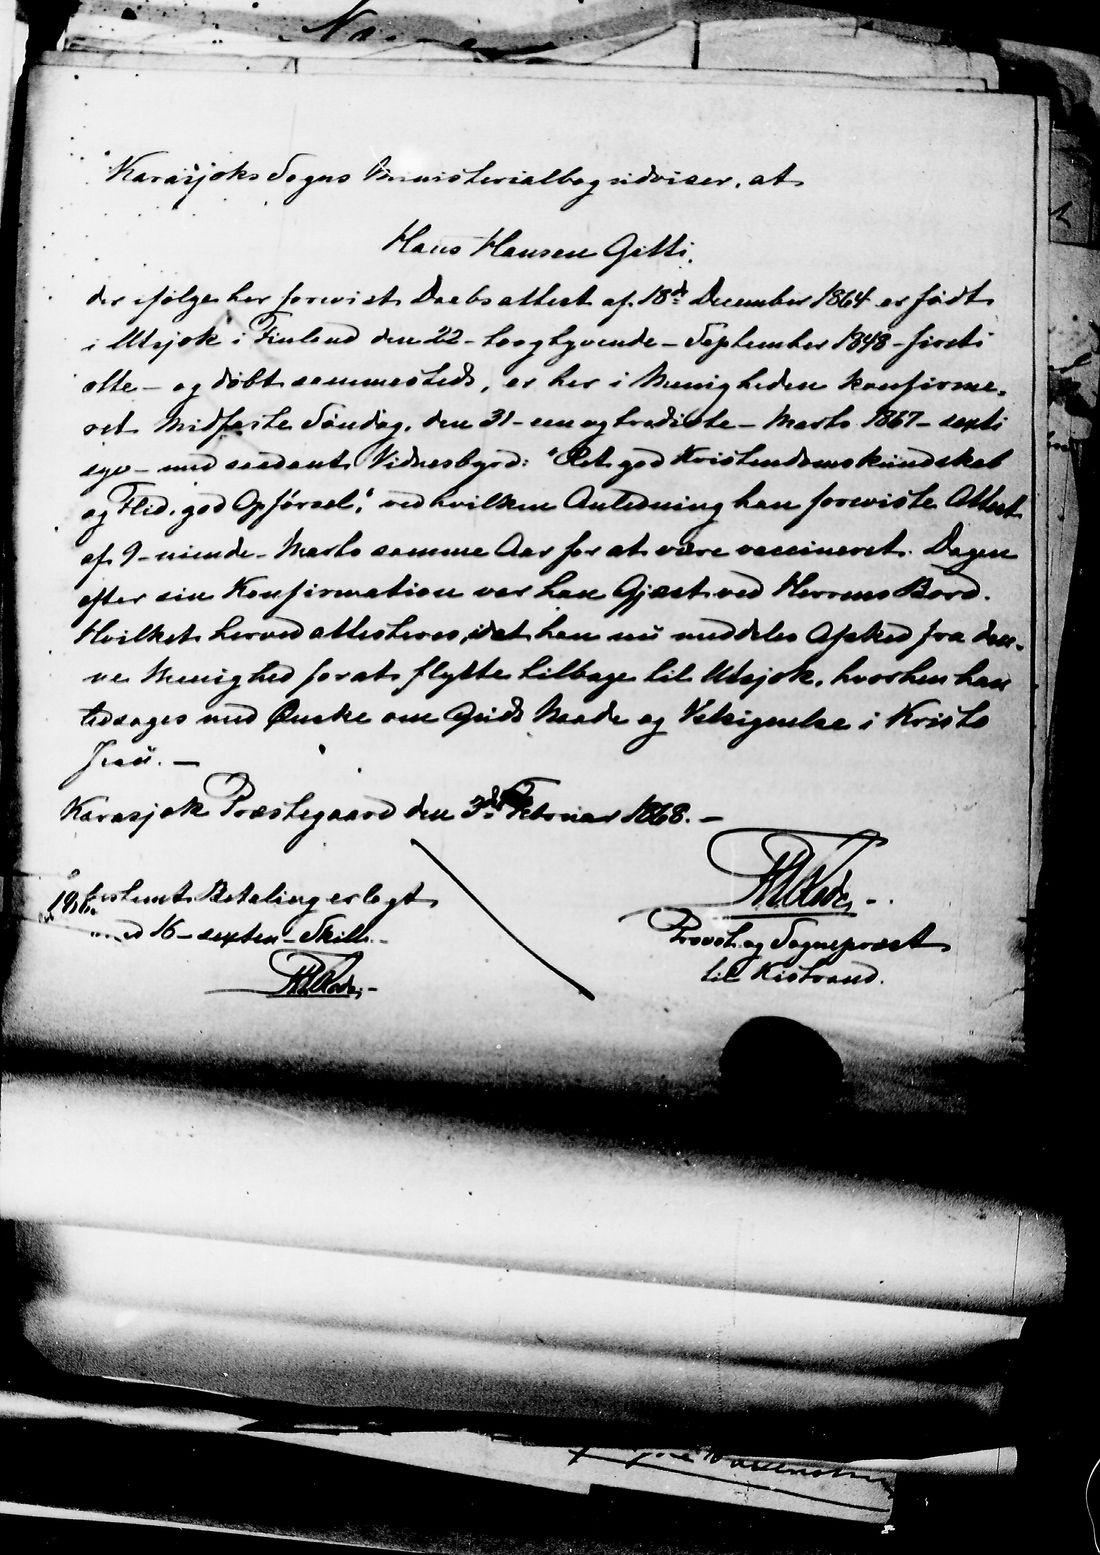 Karasjoks Sogns Ministerialbog udviser, at
Hans Hansen Gitti,
der ifølge her forevist Daabsattest af 18d December 1864 er født
i Utsjok i Finland den 22 - toogtyvende - September 1848 - firti
otte - og døbt sammesteds, er her i Menigheden konfirme-
ret Midfaste Søndag, den 31 - en og tredivte - Marts 1867 - sexti
syv - med saadant Vidnesbyrd: "Ret god Kristendomskundskab
og Flid, god Opførsel", ved hvilken Anledning han foreviste Attest
af 9 - niende - Marts samme Aar for at være vaccineret. Dagen
efter sin Konfirmation var han Gjæst ved Herrens Bord.
Hvilket herved attesteres, idet han nu meddeles Afsked fra den-
ne Menighed forat flytte tilbage til Utsjok, hvorhen han
ledsages med Ønske om Guds Naade og Velsignelse i Kristo
Jesu. -
Karasjok Præstegaard den 3d Februar 1868. -
Betaling erlagt
med 16 - sexten - Skill. -
Provst og Sognepræst
til Kistrand.